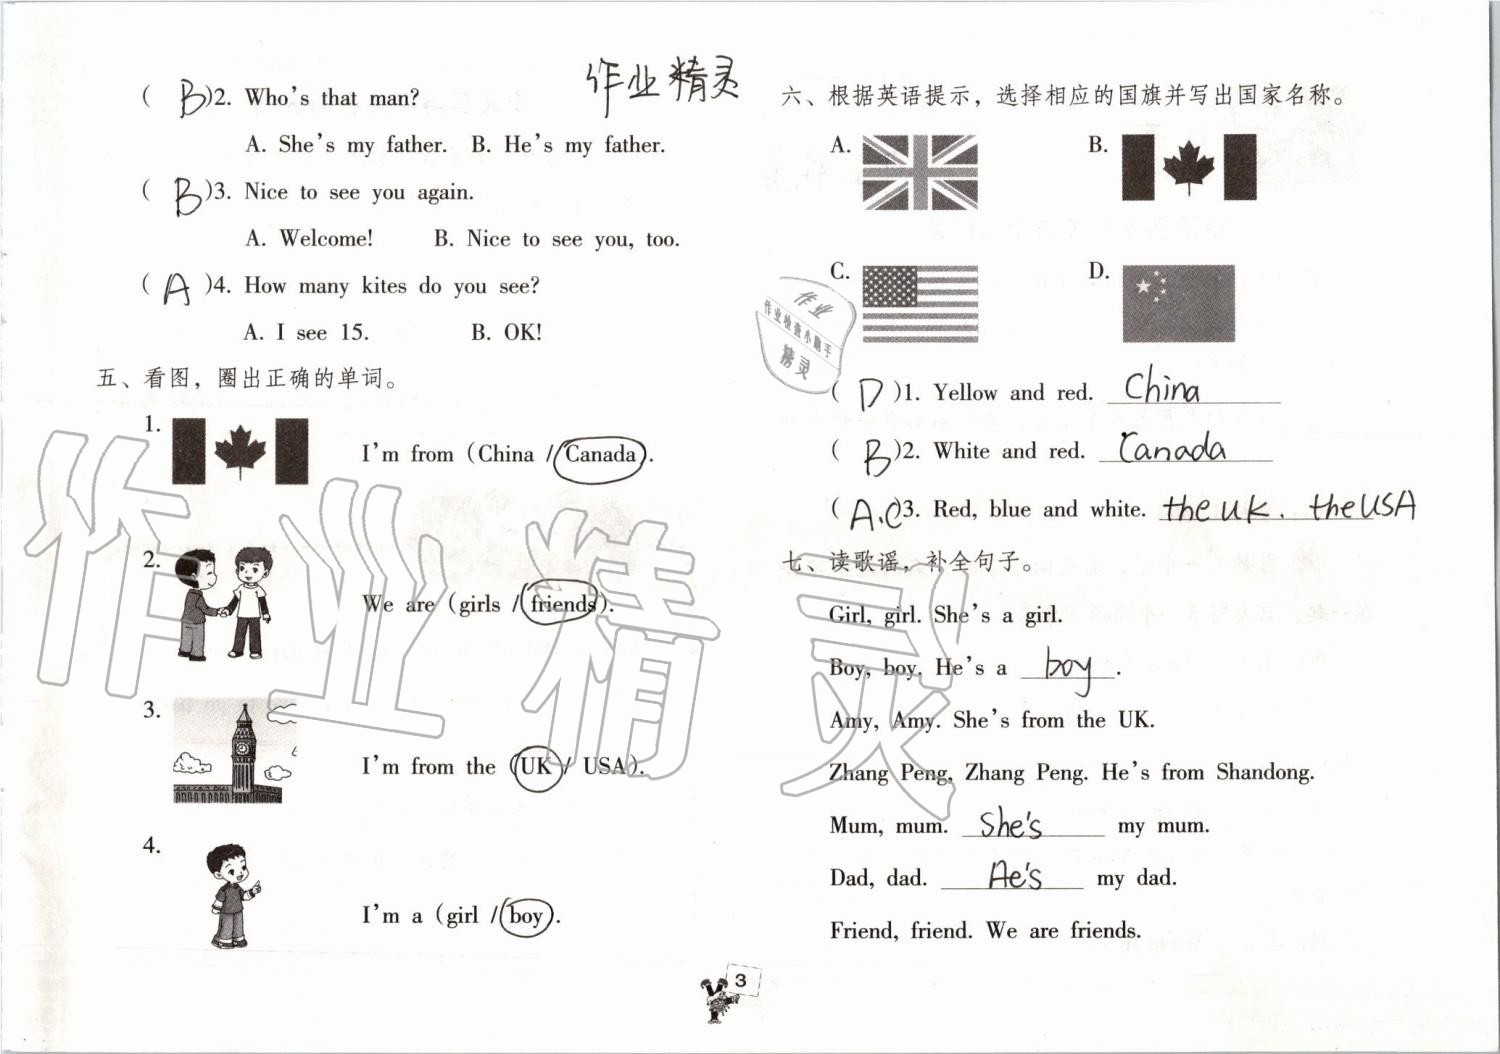 作业精灵
( B )2. Who's that man?
A. She's my father. B. He's my father.
( B )3. Nice to see you again.
A. Welcome! B. Nice to see you, too.
( A )4. How many kites do you see?
A. I see 15. B. OK!
五、看图，圈出正确的单词。
1.
I'm from (China / Canada).
2.
We are (girls / friends).
3.
I'm from the (UK / USA).
4.
I'm a (girl / boy).
六、根据英语提示，选择相应的国旗并写出国家名称。
A. B.
C. D.
( D )1. Yellow and red. China
( B )2. White and red. Canada
( A.C )3. Red, blue and white. the UK. the USA
七、读歌谣，补全句子。
Girl, girl. She's a girl.
Boy, boy. He's a boy.
Amy, Amy. She's from the UK.
Zhang Peng, Zhang Peng. He's from Shandong.
Mum, mum. She's my mum.
Dad, dad. He's my dad.
Friend, friend. We are friends.
3
作业
作业检查小助手
精灵
作业精灵